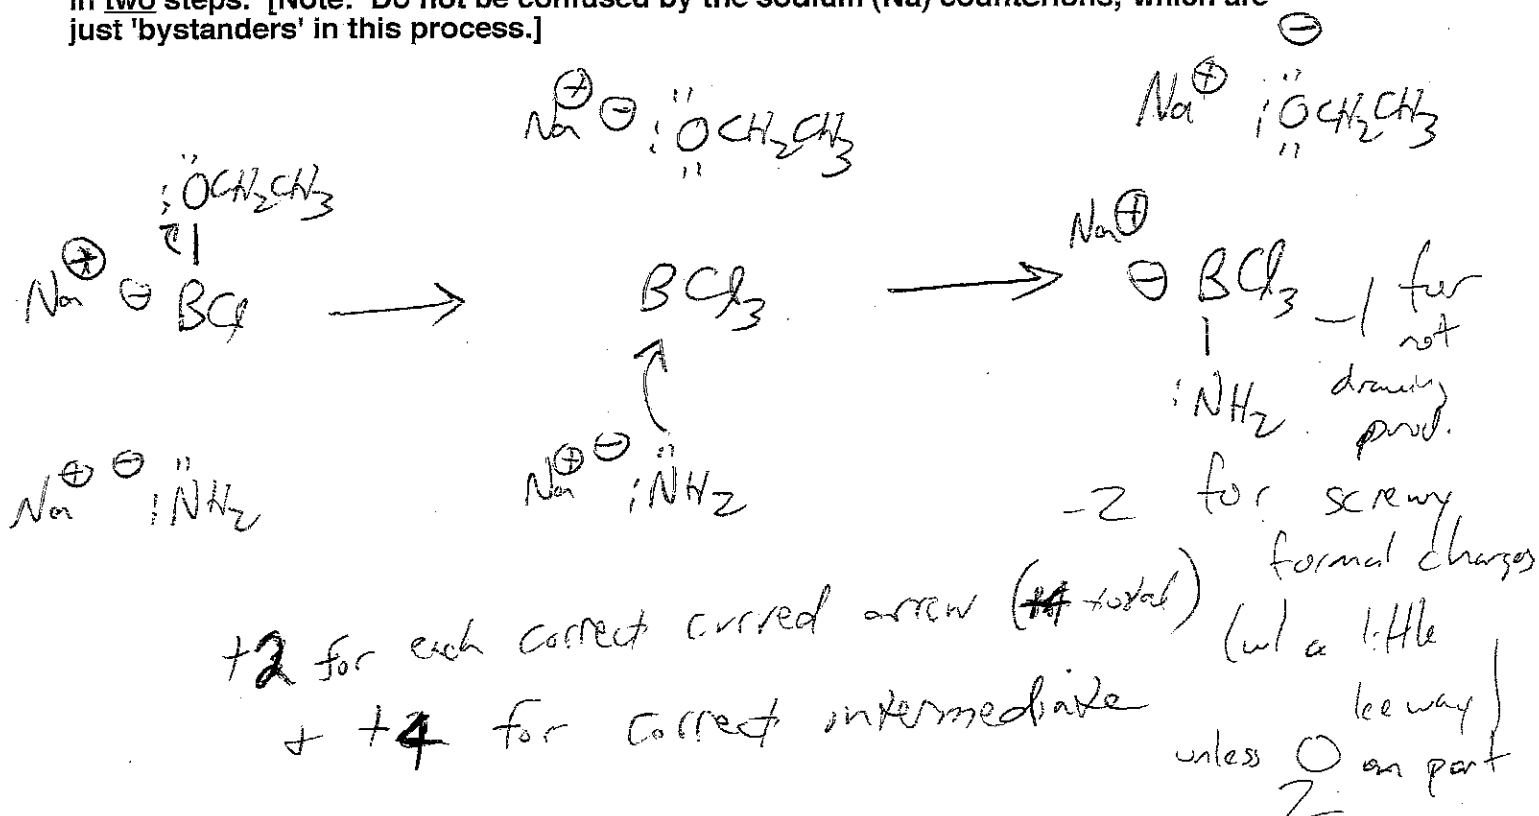 in two steps. [Note: Do not be confused by the sodium (Na) counterions, which are
just 'bystanders' in this process.]
Na⊕ ⊖ :ÖCH₂CH₃
⊖
Na⊕ :ÖCH₂CH₃
:ÖCH₂CH₃
Na⊕ ⊖ BCl
BCl₃
Na⊕
⊖ BCl₃
:NH₂
Na⊕ ⊖ :NH₂
Na⊕ ⊖ :NH₂
-1 for
not
drawing
prod.
-2 for screwy
formal charges
(w/ a little
leeway)
unless 0 on part
2
+2 for each correct curved arrow (+4 total)
+ +4 for correct intermediate